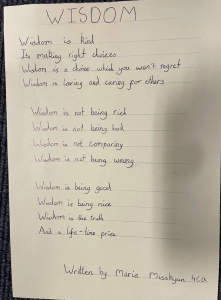 WISDOM
Wisdom is kind
Its making right choices
Wisdom is a choice which you won't regret
Wisdom is loving and caring for others
Wisdom is not being rich
Wisdom is not being bad
Wisdom is not comparing
Wisdom is not being wrong
Wisdom is being good
Wisdom is being nice
Wisdom is the truth
And a life-time price
Written by Maria